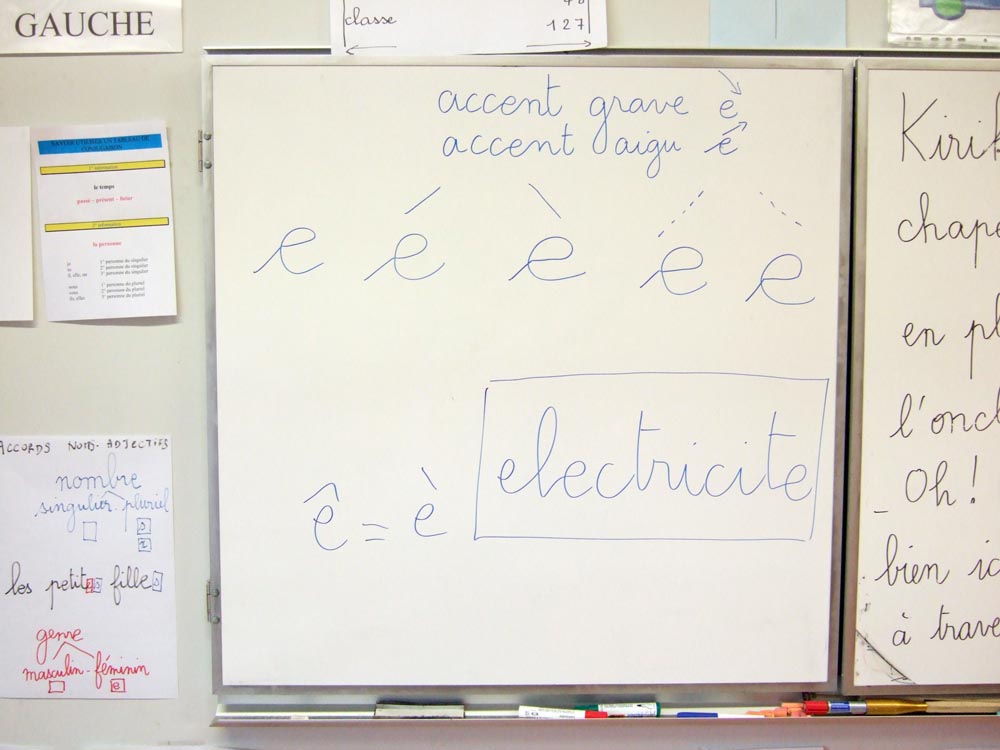 GAUCHE
classe
127
SAVOIR UTILISER UN TABLEAU DE
CONJUGAISON
1° information
le temps
passé – présent – futur
2° information
la personne
je 1° personne du singulier
tu 2° personne du singulier
il, elle, on 3° personne du singulier
nous 1° personne du pluriel
vous 2° personne du pluriel
ils, elles 3° personne du pluriel
ACCORDS NOM-ADJECTIFS
nombre
singulier-pluriel
s
x
les petites filles
genre
masculin-féminin
e
accent grave è
accent aigu é
e é è e e
ê = è
electricite
Kirik
chape
en pl
l'oncl
_ Oh!
bien ic
à trave